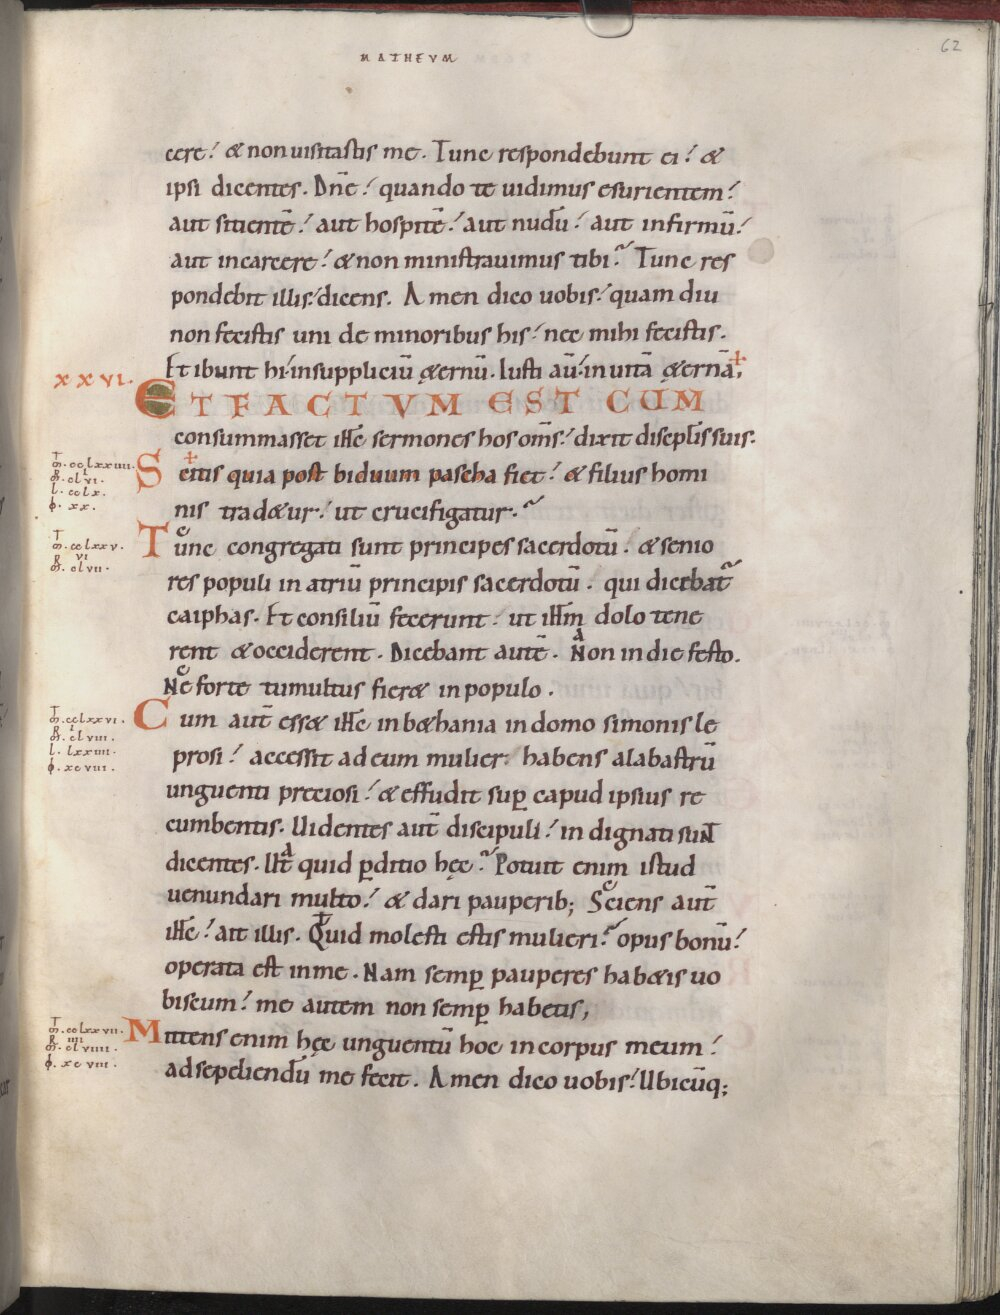 MATHEVM
62
cere / & non uisitastis me. Tunc respondebunt ei / &
ipsi dicentes. Dn̄e / quando te uidimus esurientem /
aut sitientē / aut hospitē / aut nudū / aut infirmū /
aut in carcere / & non ministrauimus tibi ? Tunc res
pondebit illis / dicens. Amen dico uobis / quam diu
non fecistis uni de minoribus his / nec mihi fecistis.
Et ibunt hi / in suppliciū ęternū. Iusti aū / in uitā ęternā;
XXVI. ET FACTVM EST CUM
consummasset ihc̄ sermones hos om̄s / dixit discipłis suis.
m̄. cclxxiiii. Scitis quia post biduum pascha fiet / & filius homi
R̄ i
m̄. clvi.
l. cclx.
ϕ. xx.
nis trad&ur / ut crucifigatur.
m̄. cclxxv. Tunc congregati sunt principes sacerdotū. & senio
R̄ vi
m̄. clvii.
res populi in atriū principis sacerdotū. qui dicebat̃
caiphas. Et consiliū fecerunt / ut ihm̄ dolo tene
rent & occiderent. Dicebant autē. Non in die festo.
Ne forte tumultus fier& in populo.
m̄. cclxxvi. Cum aut̄ ess& ihc̄ in b&hania in domo simonis le
R̄ i
m̄. clviii.
l. lxxiiii.
ϕ. xcviii.
prosi / accessit ad eum mulier / habens alabastrū
unguenti preciosi / & effudit sup̱ capud ipsius re
cumbentis. Uidentes aut̄ discipuli / in dignati sunt
dicentes. Ut̄ quid p̱ditio hęc ? Potuit enim istud
uenundari multo / & dari pauperib; Sciens aut̄
ihc̄ / ait illis. Quid molesti estis mulieri ? opus bonū /
operata est in me. Nam semp̱ pauperes hab&is uo
biscum / me autem non semp̱ habetis;
m̄. cclxxvii. Mittens enim hęc unguentū hoc in corpus meum /
R̄ iiii
m̄. clviiii.
ϕ. xcviii.
ad sepeliendū me fecit. Amen dico uobis / Ubicūq;